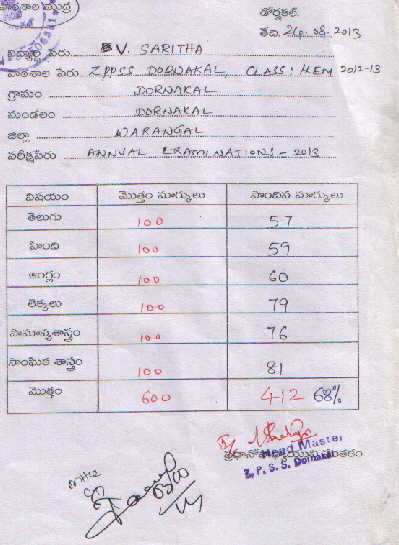 పాఠశాల ముద్ర
డోర్నకల్
తేది. 24.06.2013
విద్యార్థి పేరు. V. SARITHA
పాఠశాల పేరు ZPDSS DORNAKAL, CLASS: 2012-13
గ్రామం DORNAKAL
మండలం DORNAKAL
జిల్లా WARANGAL
పరీక్షపేరు ANNUAL EXAMINATIONS - 2013
విషయం మొత్తం మార్కులు పొందిన మార్కులు
తెలుగు 100 57
హింది 100 59
ఆంగ్లం 100 60
లెక్కలు 100 79
సామాన్యశాస్త్రం 100 76
సాంఘిక శాస్త్రం 100 81
మొత్తం 600 412 68%
Head Master
Z. P. S. S. Dornakal